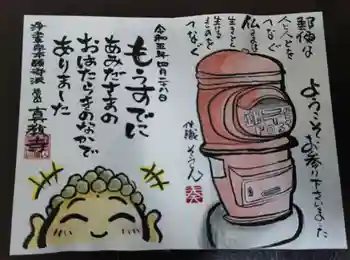 ようこそお参り下さいました
郵便は
人と人とを
つなぐ
仏さまは
生きると
つなぐ
奏
令和五年四月二十八日
もうすでに
あみださまの
おはたらきのなかで
ありました
浄土真宗本願寺派
真教寺